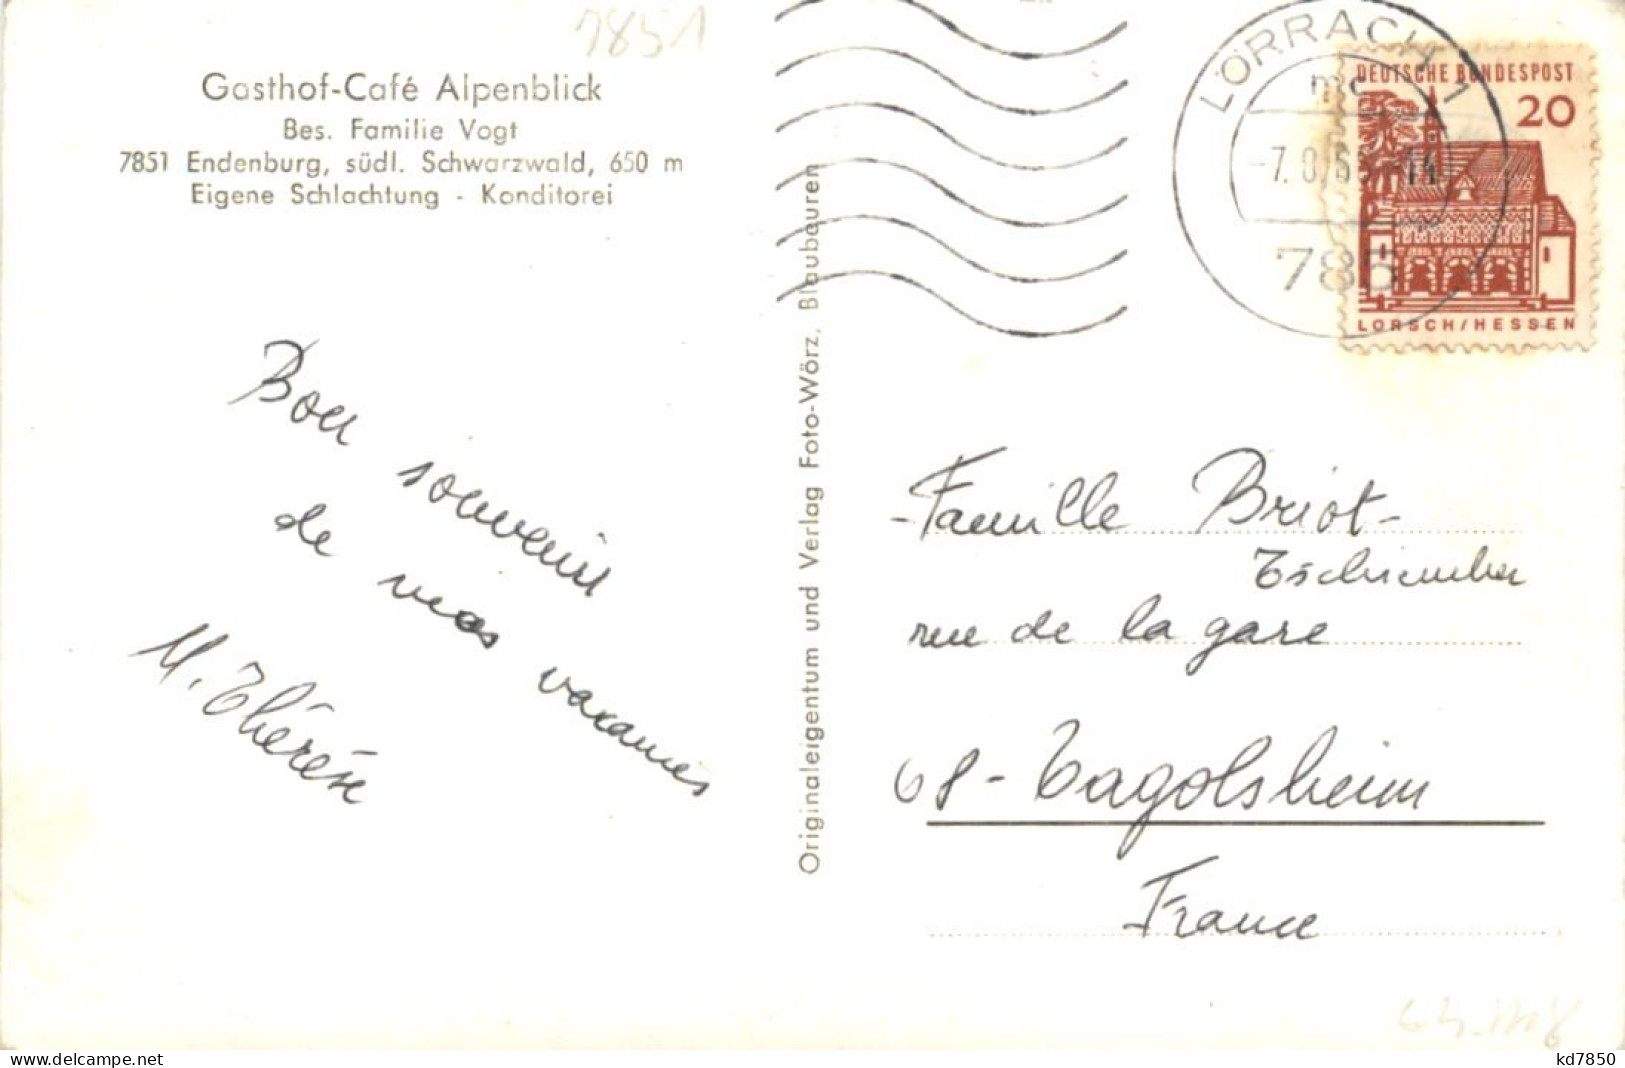 7851
Gasthof-Café Alpenblick
Bes. Familie Vogt
7851 Endenburg, südl. Schwarzwald, 650 m
Eigene Schlachtung - Konditorei
Bon souvenir
de mes vacances
M. Thérèse
Originaleigentum und Verlag Foto-Wörz, Blaubeuren
LÖRRACH 1
mc
785
DEUTSCHE BUNDESPOST
20
LORSCH/HESSEN
-Famille Briot-
Tschirember
rue de la gare
68-Tagolsheim
France
kd7850